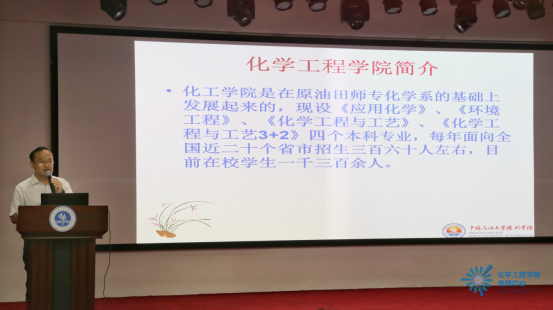 化学工程学院简介
• 化工学院是在原油田师专化学系的基础上
发展起来的，现设《应用化学》、《环境
工程》、《化学工程与工艺》、《化学工
程与工艺3+2》四个本科专业，每年面向全
国近二十个省市招生三百六十人左右，目
前在校学生一千三百余人。
化学工程学院